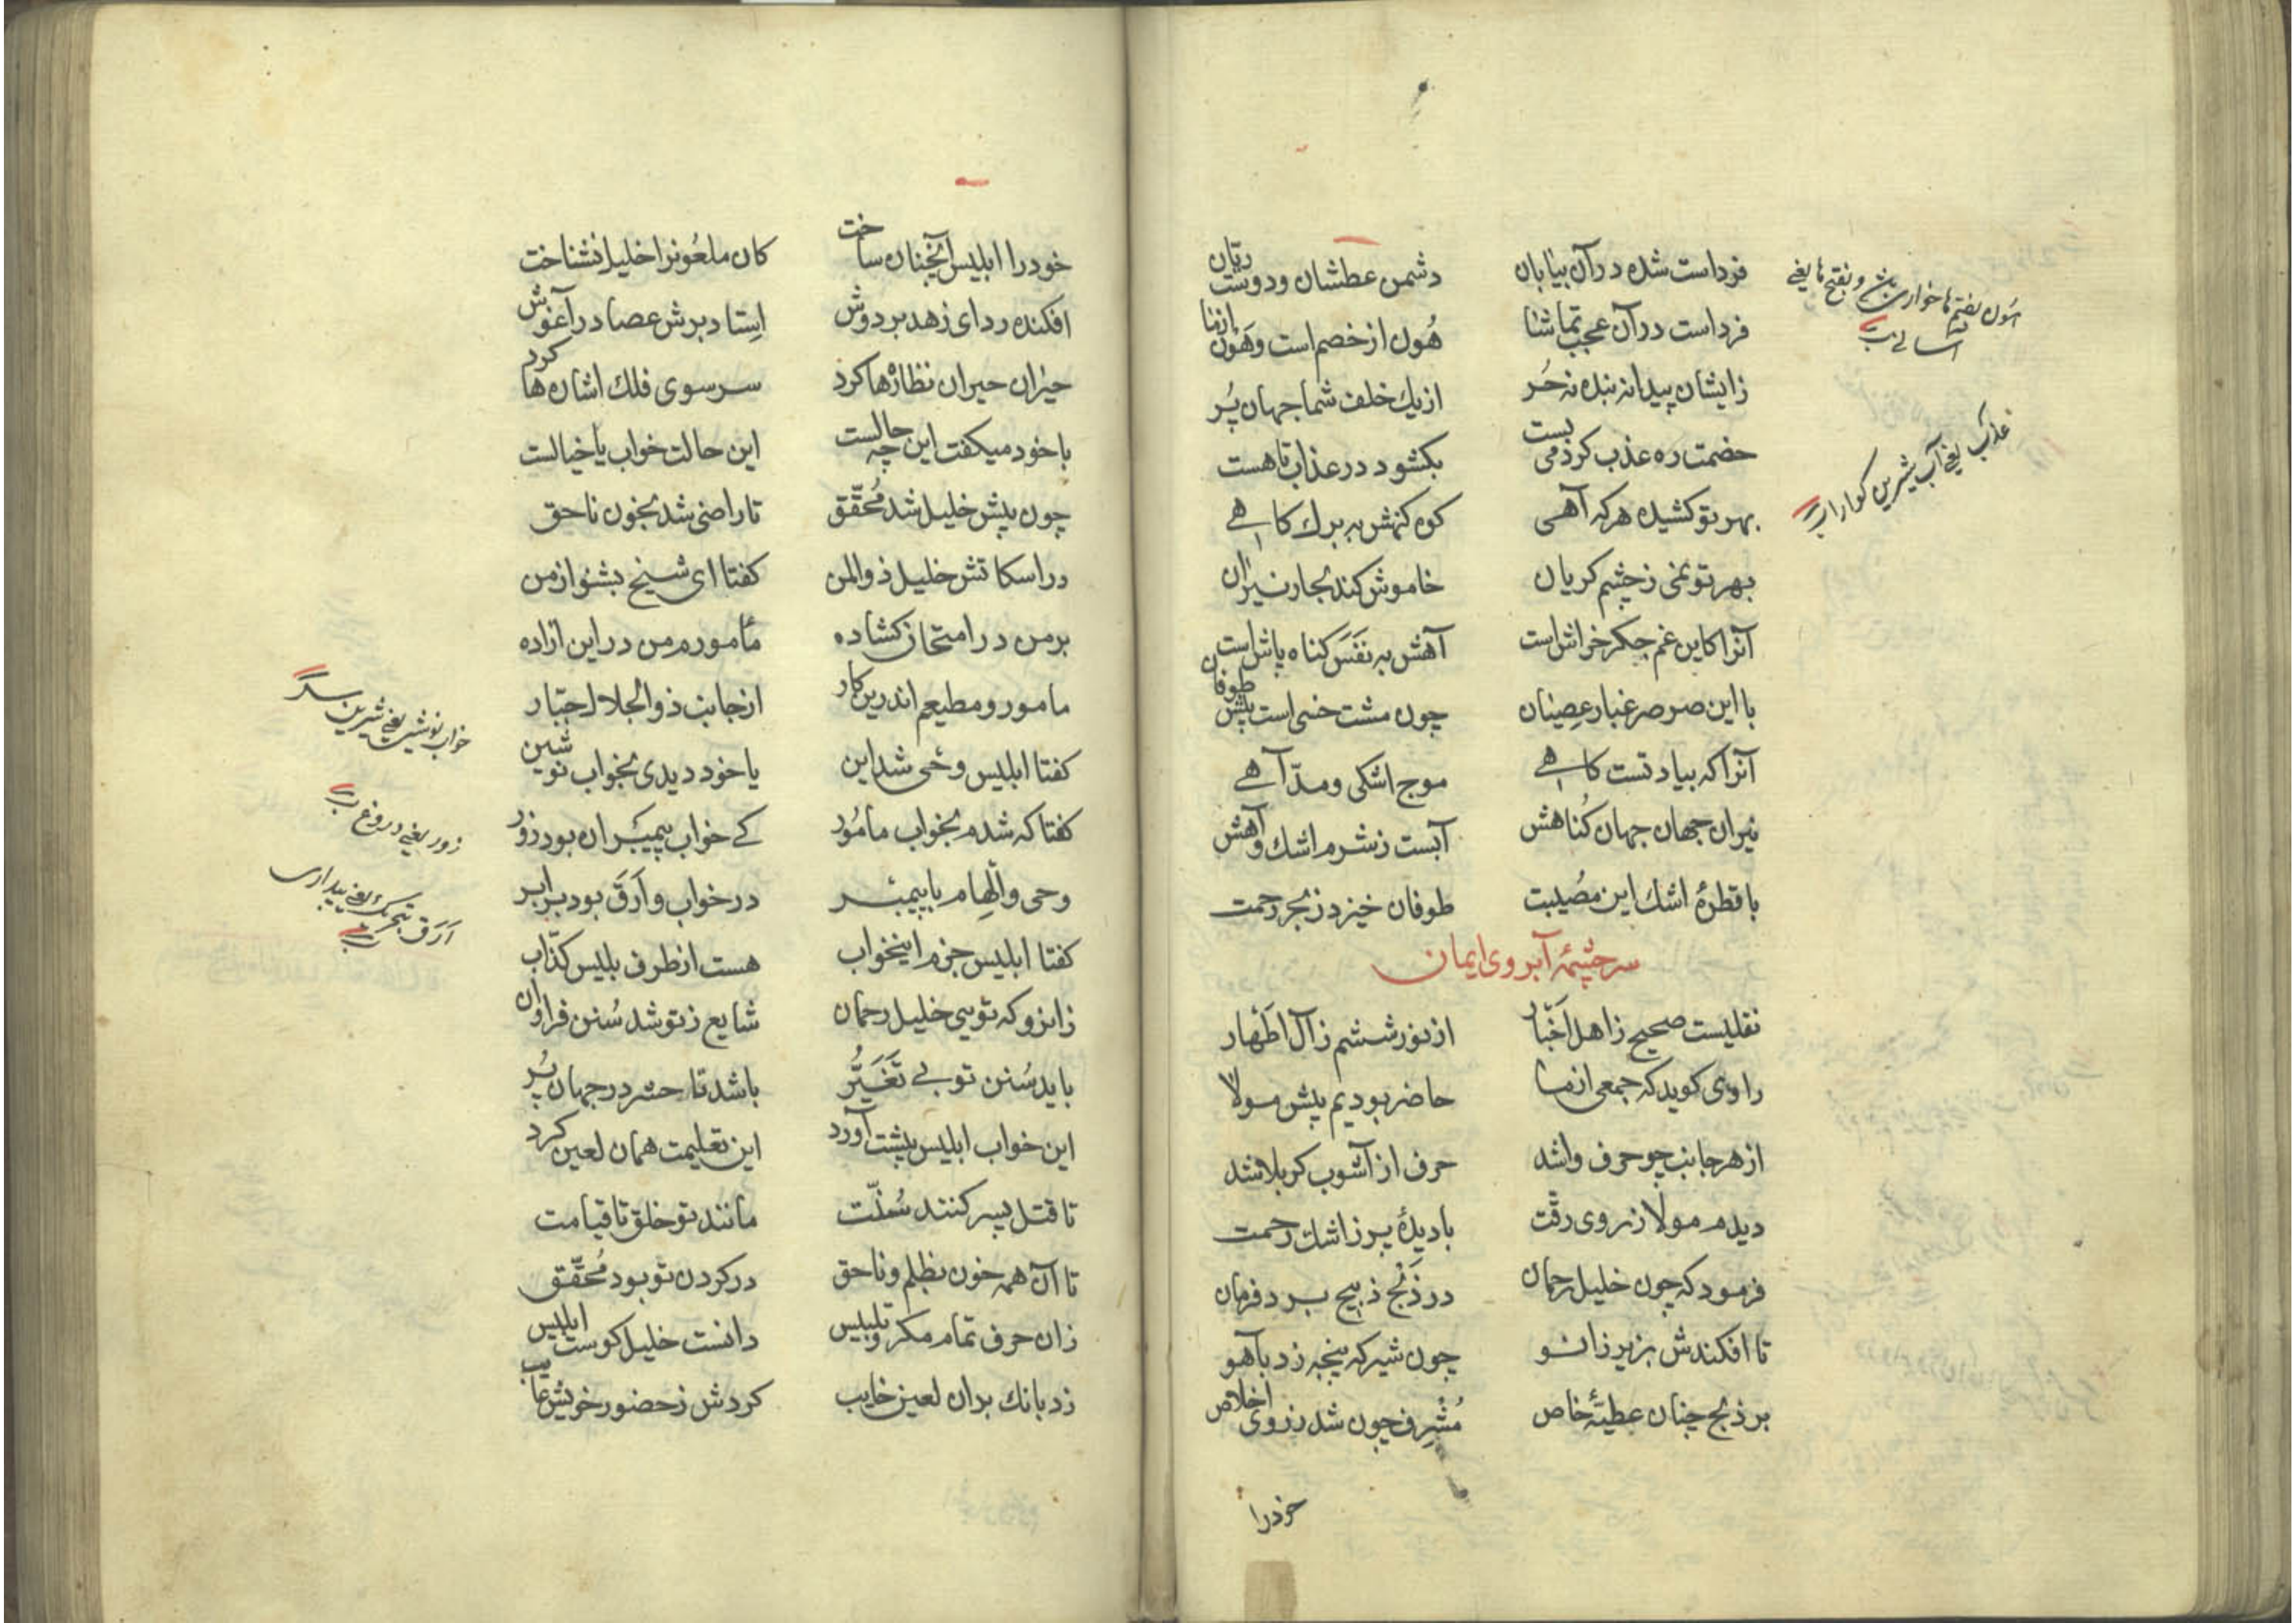 فرداست شده در آن بیابان دشمن عطشان و دوست ریان
فرداست در آن عجب تماشا هُون از خصم است وهَون از ما
زایشان پیدا نه بنده نه حُر از یك خلف شما جهان پُر
خصمت ره عذب کر دمی بست بکشود در عذاب تا هست
بهر تو کشیده هر که آهی کوه کنهش به برك کاهی
بهر تو نمی ز چشم کریان خاموش کند بحار نیران
آنرا کاین غم جکر خراش است آهش به نَفَس کناه پاش است
با این صرصر غبار عصیان چون مشت خسی است پیش طوفان
آنرا که بیاد تست کاهی موج اشکی و مدّ آهی
نیران جهان جهان کُناهش آبست ز شرم اشك و آهش
با قطرۀ اشك این مصُیبت طوفان خیزد ز بحر رحمت
سرچشمۀ آبروی ایمان
نقلیست صحیح ز اهل اَخبار از نور ششم ز آل اَطهار
راوی کوید که جمعی از ما حاضر بودیم پیش مولا
از هر جانب چو حرف واشد حرف از آشوب کربلا شد
دیدم مولا ز روی رقّت با دیدۀ پر ز اشك رحمت
فرمود که چون خلیل رحمان در ذَبح ذبیح برد فرمان
تا افکندش بزیر زانو چون شیر که پنجه زد بآهو
بر ذبح چنان عطیۀ خاص مُشرِف چون شد ز روی اخلاص
خود را
هُون بضم ها خواری باشد و بفتح ها یعنی
آسانی است
عذب یعنی آب شیرین کوارا
خود را ابلیس آنچنان ساخت کان ملعُونرا خلیل نشناخت
افکنده ردای زهد بر دوش اِستاد برش عصا در آغوش
حیران حیران نظارۀها کرد سر سوی فلك اشارۀها کرد
با خود میکفت این چه حالست این حالت خواب یا خیالست
چون پیش خلیل شد مُحقّق تا راضی شد بخون ناحق
در اسکاتش خلیل ذوالمن کفتا ای شیخ بشنو از من
بر من در امتحان کشاده مأمورم من در این اراده
مامور و مطیعم اندرین کار از جانب ذوالجلال جبّار
کفتا ابلیس وحی شد این یا خود دیدی بخواب نوشین
کفتا که شدم بخواب مامُور کے خواب پیمبران بود زور
وحی و الهام با پیمبر در خواب و اَرَق بود برابر
کفتا ابلیس جزم اینخواب هست از طرف بلیس کذّاب
زانرو که تویی خلیل رحمان شایع ز تو شد سُنن فراوان
باید سُنن تو بے تَغَیُّر باشد تا حشر در جهان پُر
این خواب ابلیس پیشت آورد این تعلیمت همان لعین کرد
تا قتل پسر کنند سُنّت مانند تو خلق تا قیامت
تا آن همه خون بظلم و ناحق در کردن تو بود مُحَقّق
زان حرف تمام مکر و تلبیس دانست خلیل کوست ابلیس
زد بانك بران لعین خایب کردش ز حضور خویش غایب
خواب نوشین یعنی شیرین
زور یعنی دروغ
اَرَق بتحریك یعنی بیداری